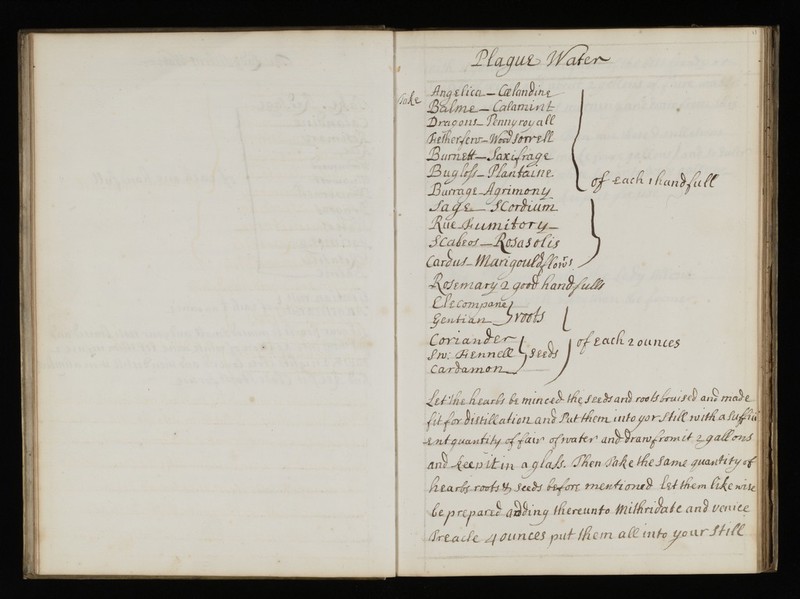 Plague Water
Take
Angelica - Cælandine
Balme - Calamint
Dragons - Pennyroyall
Fetherfew - Wood sorrell
Burnett - Saxifrage
Bugloss - Plantaine
Burrage Agrimony
of each 1 handfull
Sage - Scordium
Rue Fumitory -
Scabeos - Rosasolis
Cardus - Marigould flowrs
Rosemary 2 good handfulls
Elecompane
Gentian
roots
Coriander
Sw: Fennell
Cardamon
seeds
of each 2 ounces
Let the hearbs be minced the seeds and roots bruised and made
fit for distillation and Put them into yor still with a suffici
-ent quantity of fair of water and draw from it 2 gallons
and keep it in a glass. Then Take the same quantity of
hearbs roots & seeds before mentioned let them likewise
be prepared adding thereunto Mithridate and venice
Treacle 4 ounces put them all into your still